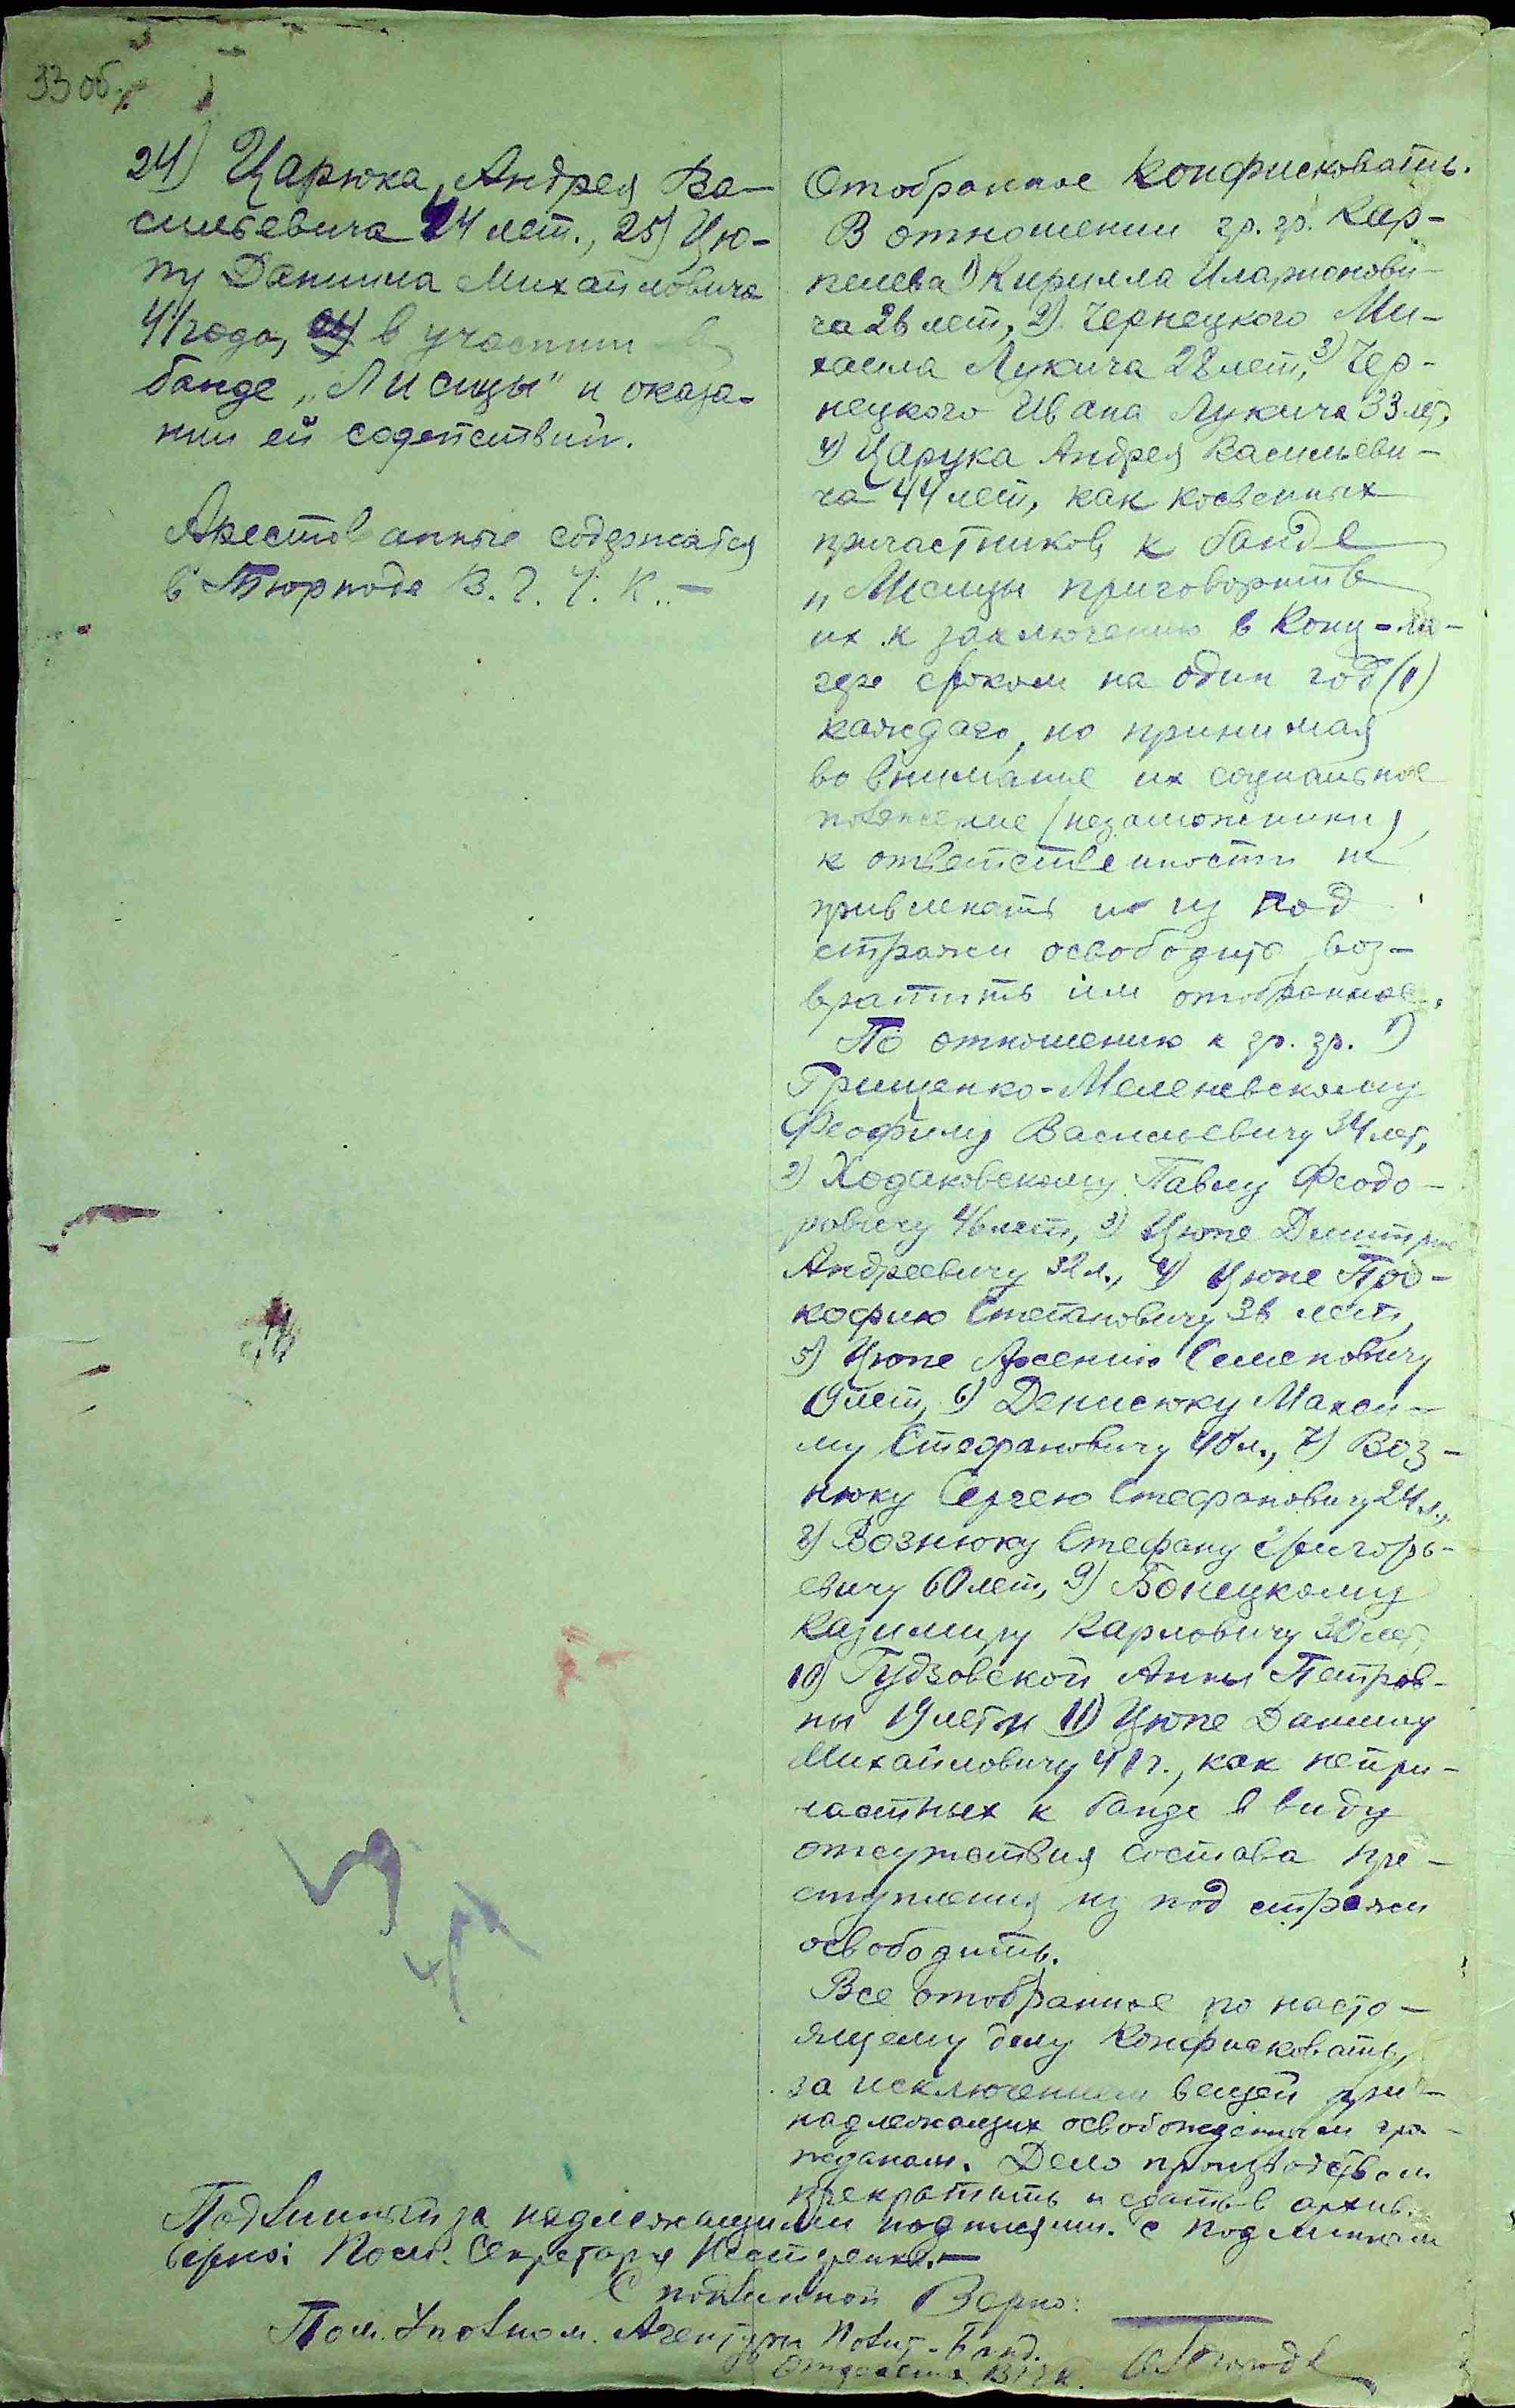 33 об.
24) Царюка, Андрея Ва-
сильевича 44 лет., 25) Цю-
пу Данила Михайловича
41 года, в участии в
банде „Лисицы" и оказа-
нии ей содействий.
Арестованные содержатся
в Тюрподе В. Г. Ч. К. —
Отобранное конфисковать.
В отношении гр. гр. Кар-
пелева 1) Кирилла Иларионови-
ча 26 лет, 2) Чернецкого Ми-
хаила Лукича 28 лет, 3) Чер-
нецкого Ивана Лукича 33 лет,
4) Царука Андрея Васильеви-
ча 44 лет, как косвенных
причастников к банде
„Лисицы приговорить
их к заключению в Конц-ла-
гере сроком на один год (1)
каждаго, но принимая
во внимание их социальное
положение (незаможники)
к ответственности не
привлекать и из под
стражи освободить, воз-
вратить им отобранное.
По отношению к гр. гр. 1)
Грищенко-Меленевскому
Феофилу Васильевичу 34 лет,
2) Ходаковскому Павлу Феодо-
ровичу 46 лет, 3) Цюпе Дмитрию
Андреевичу 32 л., 4) Цюпе Про-
кофию Степановичу 36 лет,
5) Цюпе Арсению Семеновичу
19 лет, 6) Денисюку Макси-
му Стефановичу 40 л., 7) Воз-
нюку Сергею Стефановичу 24 л.,
8) Вознюку Стефану Григорь-
евичу 60 лет, 9) Бонецкому
Казимиру Карловичу 30 лет,
10) Гудзовской Анны Петров-
ны 19 лет и 11) Цюпе Данилу
Михайловичу 41 г., как непри-
частных к банде в виду
отсутствия состава пре-
ступления из под стражи
освободить.
Все отобранное по насто-
ящему делу Конфисковать,
за исключением вещей при-
надлежащих освобожденным гра-
жданам. Дело производством
прекратить и сдать в архив.
Подлинный за надлежащими подписями. С подлинным
верно: Пом. Секретаря Нестеренко. —
С подлинной Верно:
Пом. Уполном. Агентуры Полит-Банд.
Отделения ВГЧК.